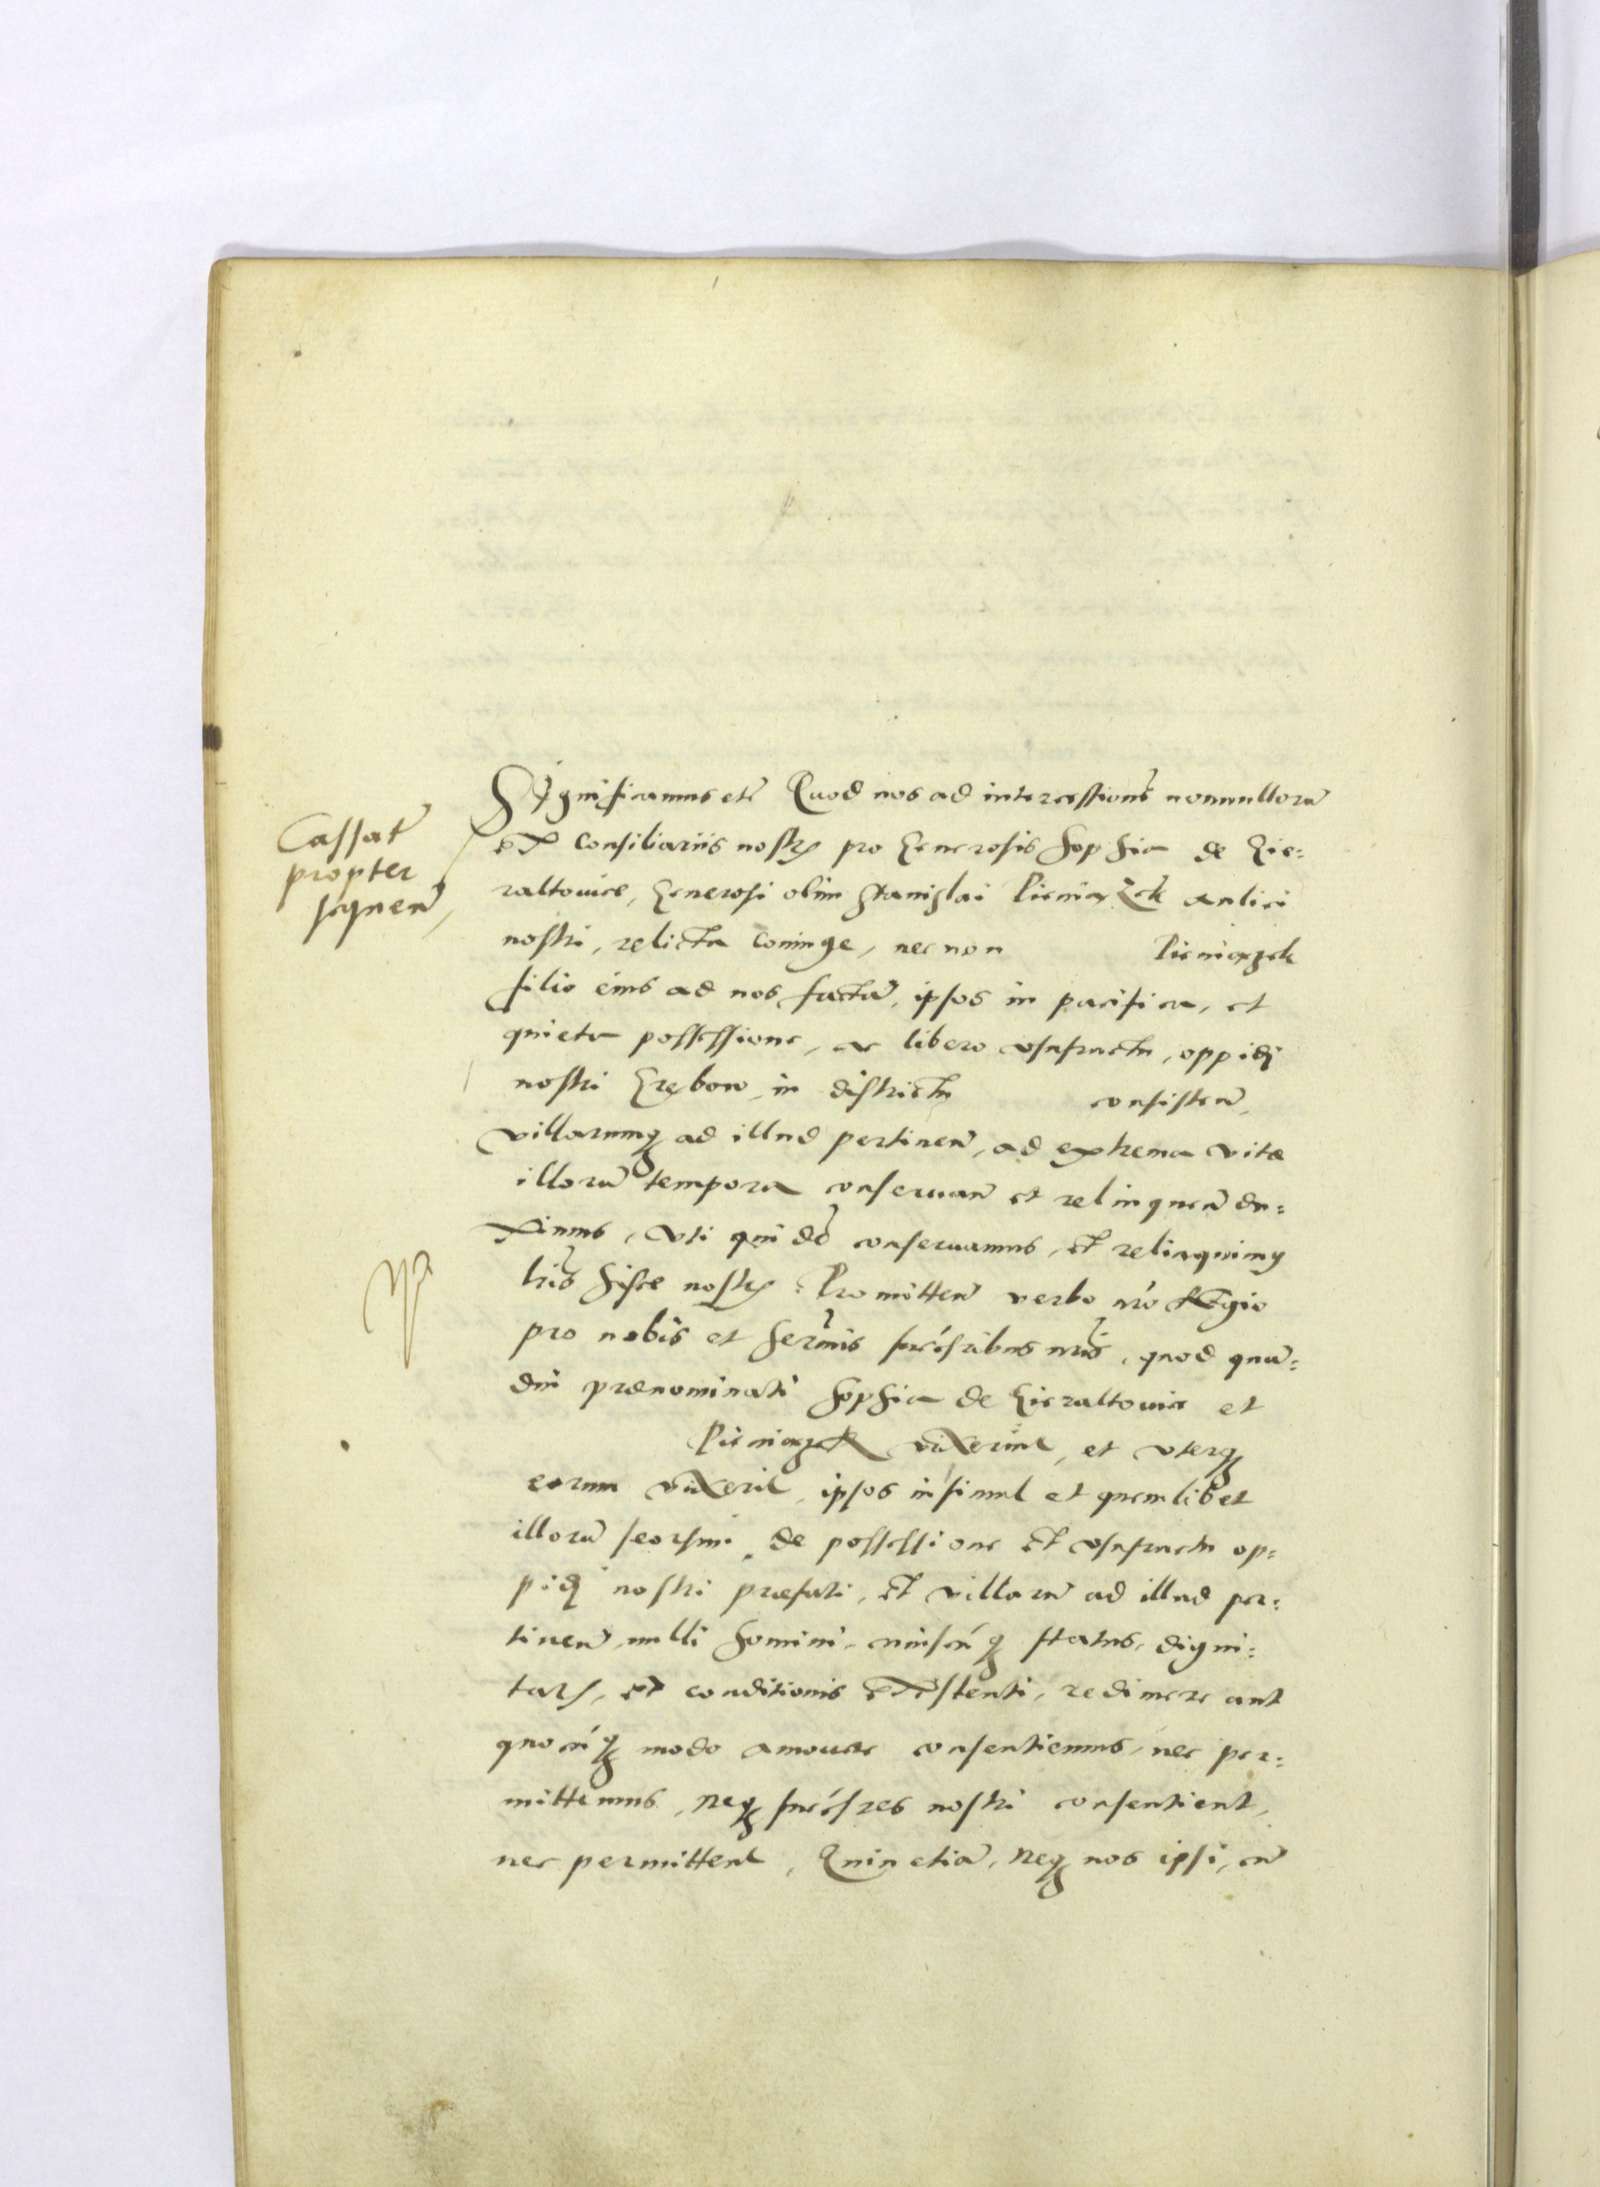 Cassat̃
propter
sequeñ,
Significamus etc̃ Quod nos ad intercessionẽ nonnullorũ
ex consiliariis nostris pro Generosis Sophia de Gie=
raltowice, Generosi olim Stanislai Pieniązek aulici
nostri, relicta coniuge, nec non Pieniązek
filio eius ad nos factã, ipsos in pacifica, et
quieta possessione, ac libero vsufructu, oppidi
nostri Grębow, in districtu consisteñ,
villarumq₃ ad illud pertineñ, ad extrema vitæ
illorũ tempora conseruañ et relinqueñ du=
ximus, vti quidẽ conseruamus, et relinquimus
lr̃is hisce nostris. Promitteñ verbo nr̃o Regio
pro nobis et Serm̃is succ̃soribus nr̃is, quod quã=
diu prænominati Sophia de Gieraltowice et
Pieniązek vixerint, et vterq₃
eorum vixerit, ipsos insimul et quemlibet
illorũ seorsim, de possessione et vsufructu op=
pidi nostri præfati, et villarũ ad illud per=
tineñ, nulli homini, cuiuscũq₃ status, digni=
tatis, et conditionis existenti, redimere aut
quocũq₃ modo amouere consentiemus, nec per=
mittemus, neq₃ succ̃sores nostri consentient,
nec permittent, Quin etiã, neq₃ nos ipsi, eũ